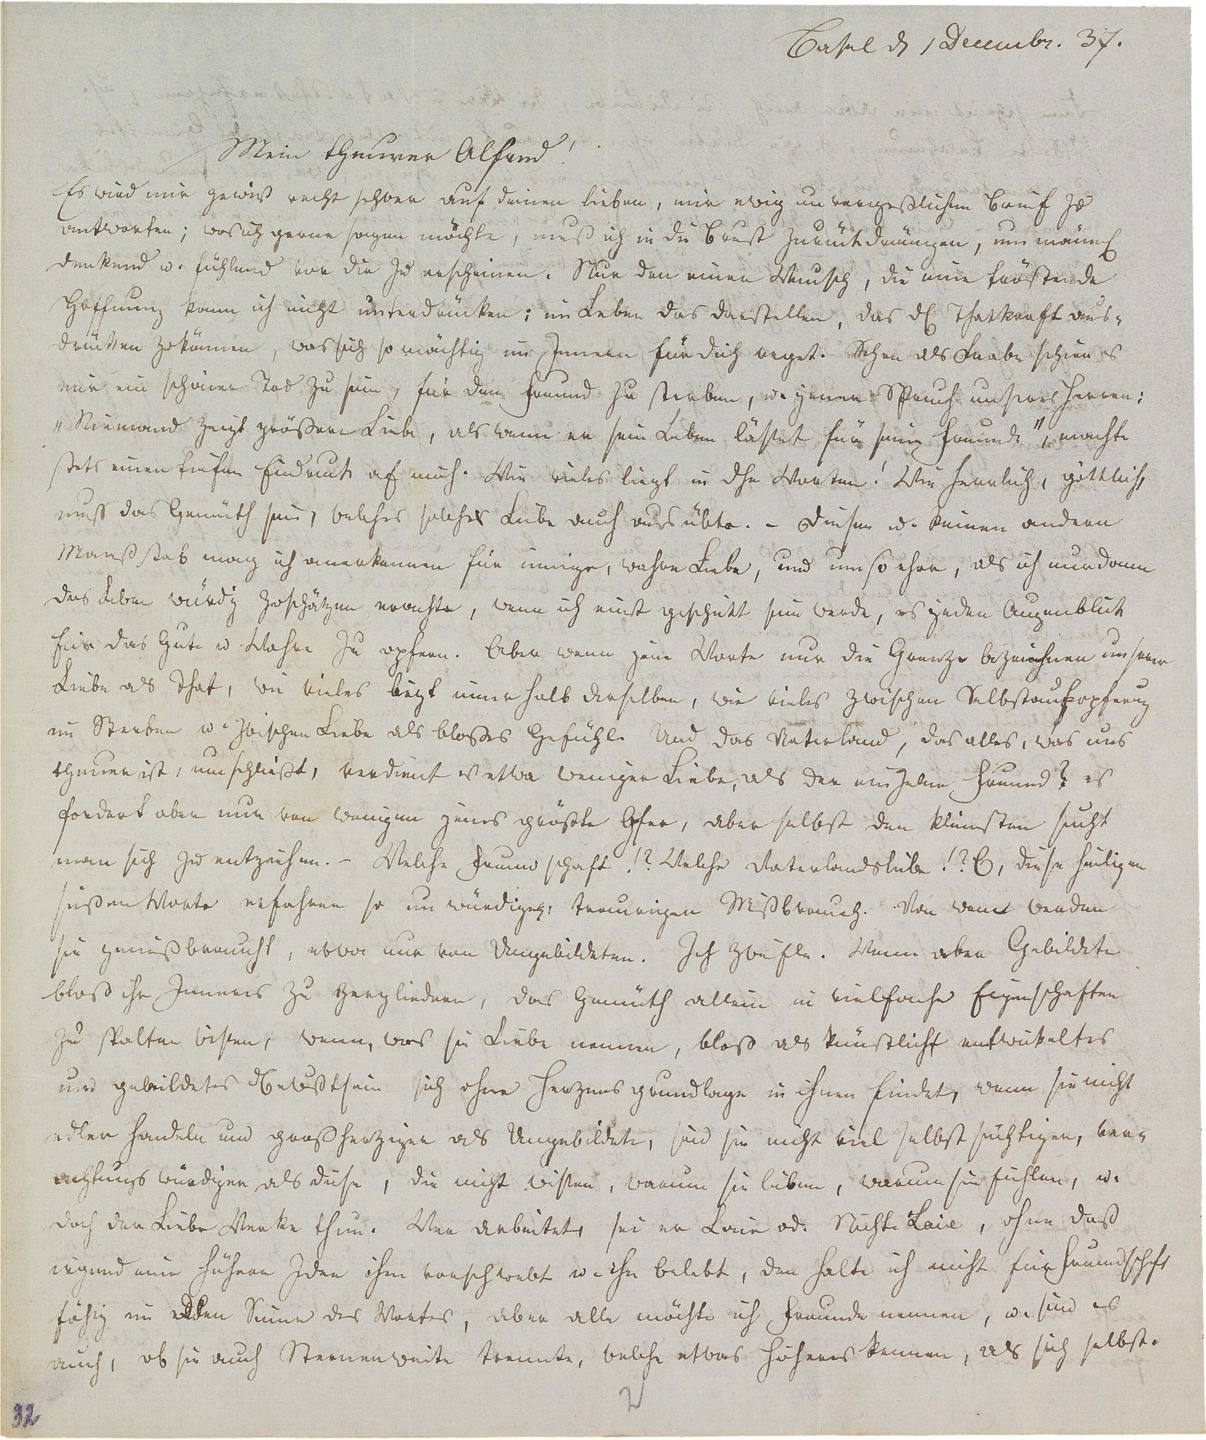 Basel d 1 Decembr. 37.
Mein theurer Alfred!
Es wird mir gewiß recht schwer auf deinen lieben, mir ewig unvergeßlichen Brief zu
antworten; was ich gerne sagen möchte, muß ich in die Brust zurükdrängen, um männl
denkend u. fühlend vor dir zu erscheinen. Nur den einen Wunsch, die eine tröstende
Hoffnung kann ich nicht unterdrücken: im Leben das darstellen, das dch Thatkraft aus-
drükken zu können, was sich so mächtig im Innern für dich reget. Schon als Knabe schien es
mir ein schöner Tod zu sein, für den Freund zu sterben, u. jener Spruch unseres Herren:
"Niemand zeigt größere Liebe, als wenn er sein Leben lässet für seine Freunde", machte
stets einen tiefen Eindruck auf mich. Wie vieles liegt in dsn Worten! Wie herrlich, göttlich
muß das Gemüth sein, welches solche Liebe auch ausübte. – Diesen u. keinen andern
Maaßstab mag ich anerkennen für innige, wahre Liebe, und um so eher, als ich nur dann
das Leben würdig zu schätzen erachte, wenn ich einst geschikt sein werde, es jeden Augenblick
für das Gute u. Wahre zu opfern. Aber wenn jene Worte nur die Grenze bezeichnen unserer
Liebe als That, wie vieles liegt innerhalb derselben, wie vieles zwischen Selbstaufopferung
im Sterben u. zwischen Liebe als bloßes Gefühl. Und das Vaterland, das alles, was uns
theuer ist, umschließt, verdient es etwa weniger Liebe, als der einzelne Freund? es
fordert aber nur von wenigen jenes größte Opfer, aber selbst den kleinsten sucht
man sich zu entziehen. – Welche Freundschaft!? Welche Vaterlandsliebe!? O, diese heiligen
süßen Worte erfahren so unwürdigen, traurigen Mißbrauch. Von wem werden
sie gemißbraucht, etwa nur von Ungebildeten. Ich zweifle. Wenn aber Gebildete
bloß ihr Inneres zu zergliedern, das Gemüth allein in vielfache Eigenschaften
zu spalten wissen, wenn, was sie Liebe nennen, bloß als künstlich entwikeltes
und gebildetes Bewußtsein sich ohne Herzensgrundlage in ihnen findet, wenn sie nicht
edler handeln und großherziger als Ungebildete, sind sie nicht viel selbstsüchtiger, ver-
achtungswürdiger als diese, die nicht wissen, warum sie lieben, warum sie fühlen, u.
doch der Liebe Werke thun. Wer arbeitet, sei er Laie od. Nicht-Laie, ohne daß
irgend eine höhere Idee ihm vorschwebt u. ihn belebt, den halte ich nicht für Freundschaft
fähig im edlen Sinne des Wortes, aber alle möchte ich Freunde nennen, u. sind es
auch, ob sie auch Sternenweite trennte, welche etwas Höheres kennen, als sich selbst.
2
32